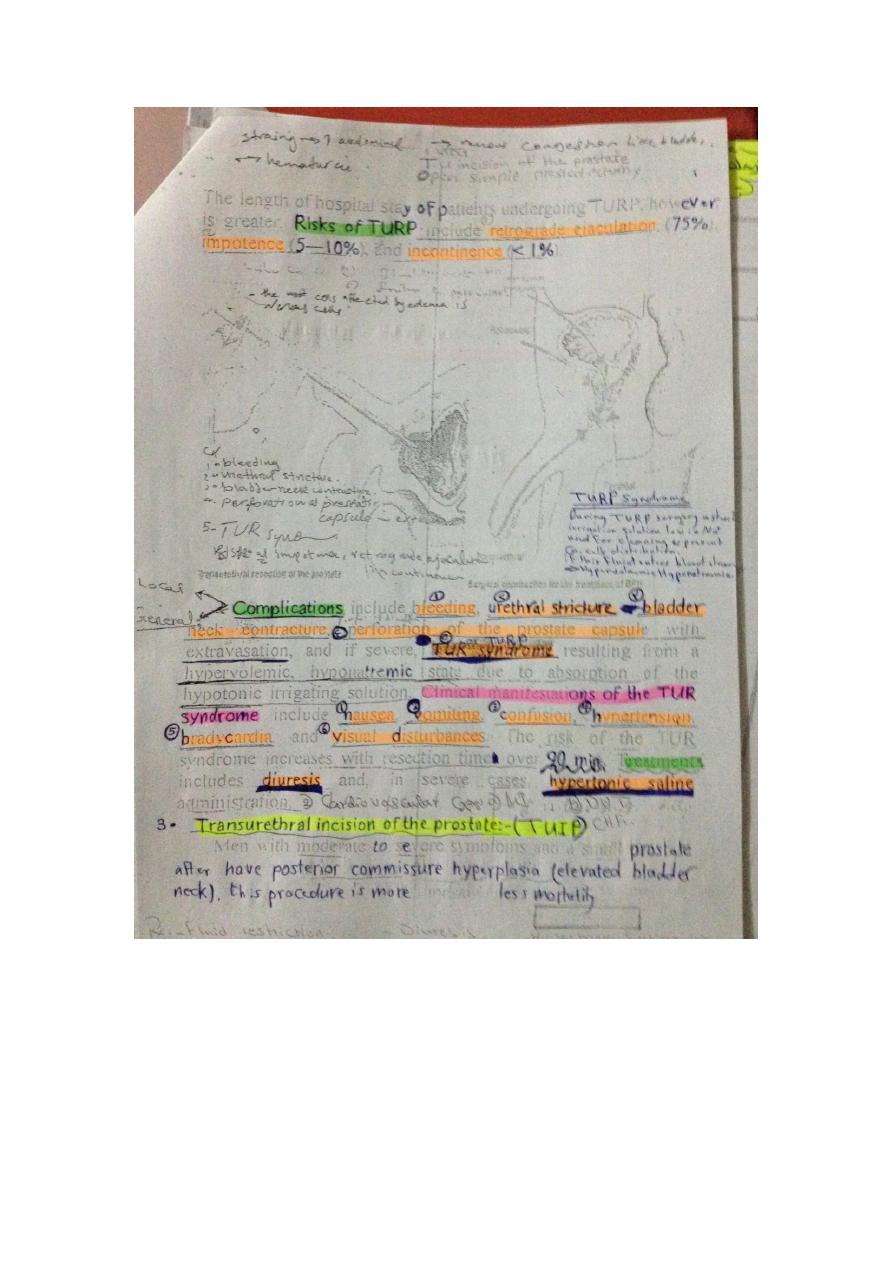 straining → ↑ abdominal → venous congestion
→ hematuria.
TU incision of the prostate
Open simple prostatectomy
The length of hospital stay of patients undergoing TURP, however
is greater. Risks of TURP include retrograde ejaculation (75%),
impotence (5—10%), and incontinence (< 1%)
- the most cells affected by edema is
nervous cells.
1- bleeding
2- urethral stricture.
3- bladder neck contracture.
4- perforation of prostatic
capsule
5- TUR synd
impotence, retrograde ejaculation
incontinence
TURP Syndrome
During TURP surgery
irrigation solution low in Na+
used for
this fluid enters blood stream
Hypervolemic Hyponatremia
Transurethral resection of the prostate
Surgical approaches for the treatment of BPH
Local
General
Complications include bleeding, urethral stricture bladder
neck contracture, perforation of the prostate capsule with
extravasation, and if severe, TUR syndrome resulting from a
hypervolemic, hyponatremic state due to absorption of the
hypotonic irrigating solution. Clinical manifestations of the TUR
syndrome include nausea, vomiting, confusion, hypertension,
bradycardia and visual disturbances. The risk of the TUR
syndrome increases with resection time over 90 min. Treatments
includes diuresis and, in severe cases, hypertonic saline
administration. Cardiovascular
3. Transurethral incision of the prostate:-(TUIP)
Men with moderate to severe symptoms and a small prostate
after have posterior commissure hyperplasia (elevated bladder
neck). this procedure is more less mortality
Fluid restriction - Diuresis